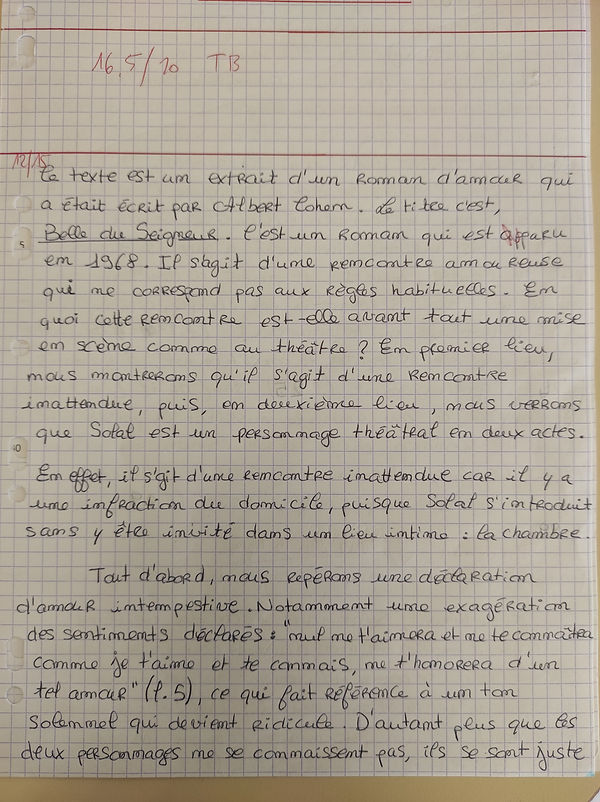 16,5/20 TB
12/15
Le texte est un extrait d'un roman d'amour qui
a était écrit par Albert Cohen. Le titre c'est,
Belle du Seigneur. C'est un roman qui est apparu
5
en 1968. Il s'agit d'une rencontre amoureuse
qui ne correspond pas aux règles habituelles. En
quoi cette rencontre est-elle avant tout une mise
en scène comme au théâtre ? En premier lieu,
nous montrerons qu'il s'agit d'une rencontre
inattendue, puis, en deuxième lieu, nous verrons
que Solal est un personnage théâtral en deux actes.
10
En effet, il s'git d'une rencontre inattendue car il y a
une infraction du domicile, puisque Solal s'introduit
sans y être invité dans un lieu intime : la chambre.
Tout d'abord, nous repérons une déclaration
d'amour intempestive. Notamment une exagération
des sentiments déclarés : "nul ne t'aimera et ne te connaîtra
comme je t'aime et te connais, ne t'honorera d'un
tel amour" (l.5), ce qui fait référence à un ton
solennel qui devient ridicule. D'autant plus que les
deux personnages ne se connaissent pas, ils se sont juste